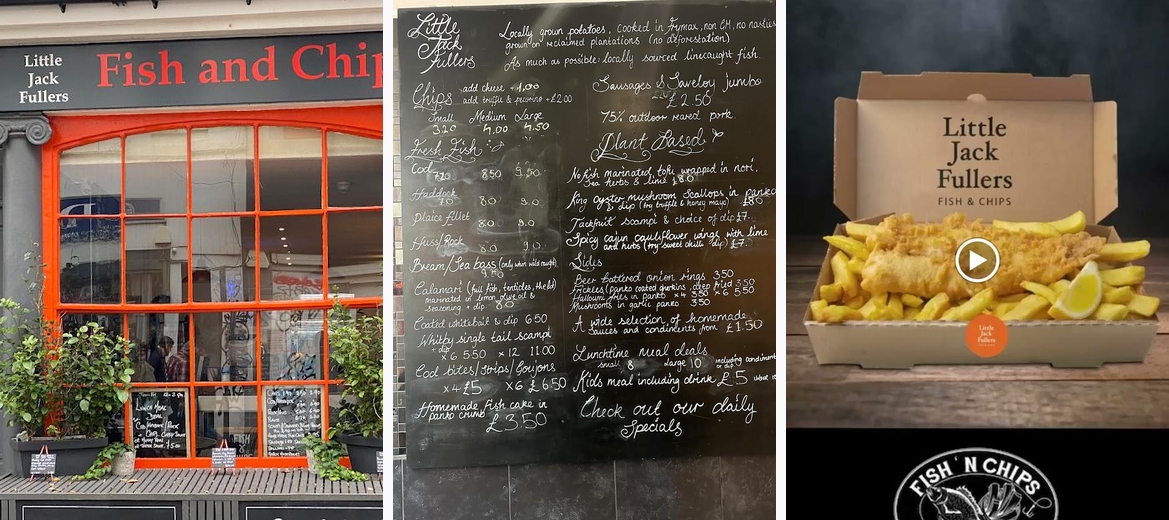 Little
Jack
Fullers
Fish and Chip
Little
Jack
Fullers
Locally grown potatoes, cooked in Frymax, non GM, no nasties
grown on reclaimed plantations (no deforestation)
As much as possible locally sourced linecaught fish.
Chips add cheese +1.00
add truffle & pecorino +£2.00
Small Medium Large
3.20 4.00 4.50
Fresh Fish
Cod 7.20 8.50 9.50
Haddock 8.0 9.0
Plaice fillet 8.0 9.0
Huss/Rock 8.0 9.0
Bream/Sea bass (only when wild caught)
Calamari (full fish, tenticles, the lot)
marinated in lemon, olive oil &
seasoning + dip. 8.0
Coated whitebait & dip 6.50
Whitby single tail scampi
+ dip
x6 5.50 x12 11.00
Cod bites/strips/Goujons
x4 £5 x6 £6.50
Homemade fish cake in
panko crumb £3.50
Sausages & Saveloy jumbo
£2.50
75% outdoor reared pork
Plant Based
No fish marinated, tofu wrapped in nori,
Sea herbs & lime £8.0
King Oyster mushroom Scallops in Panko
& dip (try truffle & honey mayo) £8.0
Jackfruit scampi & choice of dip £7.
Spicy cajun cauliflower wings with lime
and herbs (try sweet chilli dip) £7.
Sides
Beer battered onion rings 3.50
Frickles (panko coated gherkins, deep fried 3.50
Halloumi fries in panko x4 3.50 x6 5.50
Mushrooms in garlic panko 3.50
A wide selection of homemade
Sauces and condiments from £1.50
Lunchtime meal deals
small 8 Large 10 including condiment
or dip
Kids meal including drink £5
Check out our daily
Specials
LUNCH MEAL
DEAL
Little
Jack
Fullers
FISH & CHIPS
Little
Jack
Fullers
FISH 'N CHIPS